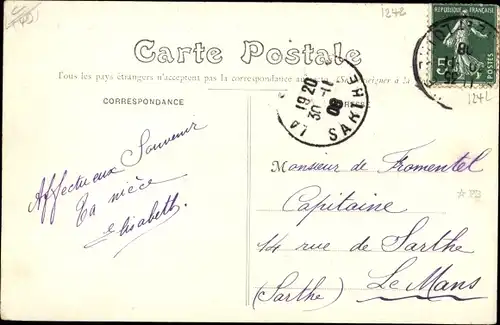 1242
RÉPUBLIQUE FRANÇAISE
5c
POSTES
Carte Postale
Tous les pays étrangers n'acceptent pas la correspondance au recto
CORRESPONDANCE
LA
SARTHE
19 20
30 - 11
08
1242
Affectueux Souvenir
Ta nièce
Elisabeth.
Monsieur de Fromentel
Capitaine
14 rue de Sarthe
Le Mans
(Sarthe)